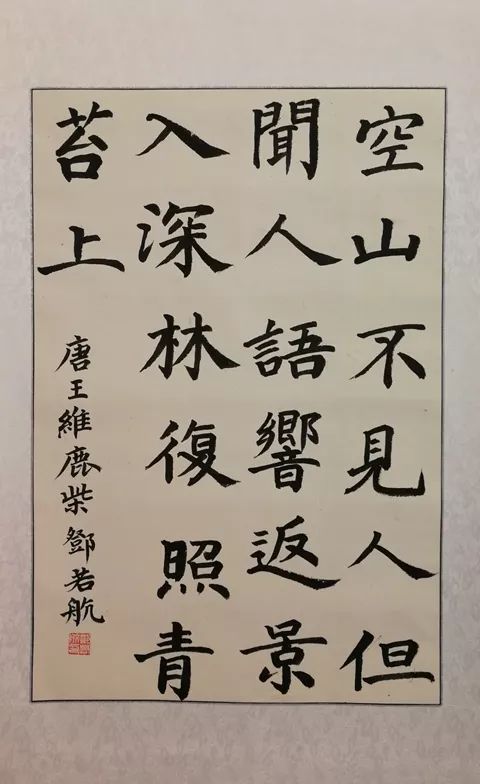 空山不見人但
聞人語響返景
入深林復照青
苔上
唐王維鹿柴鄧若航